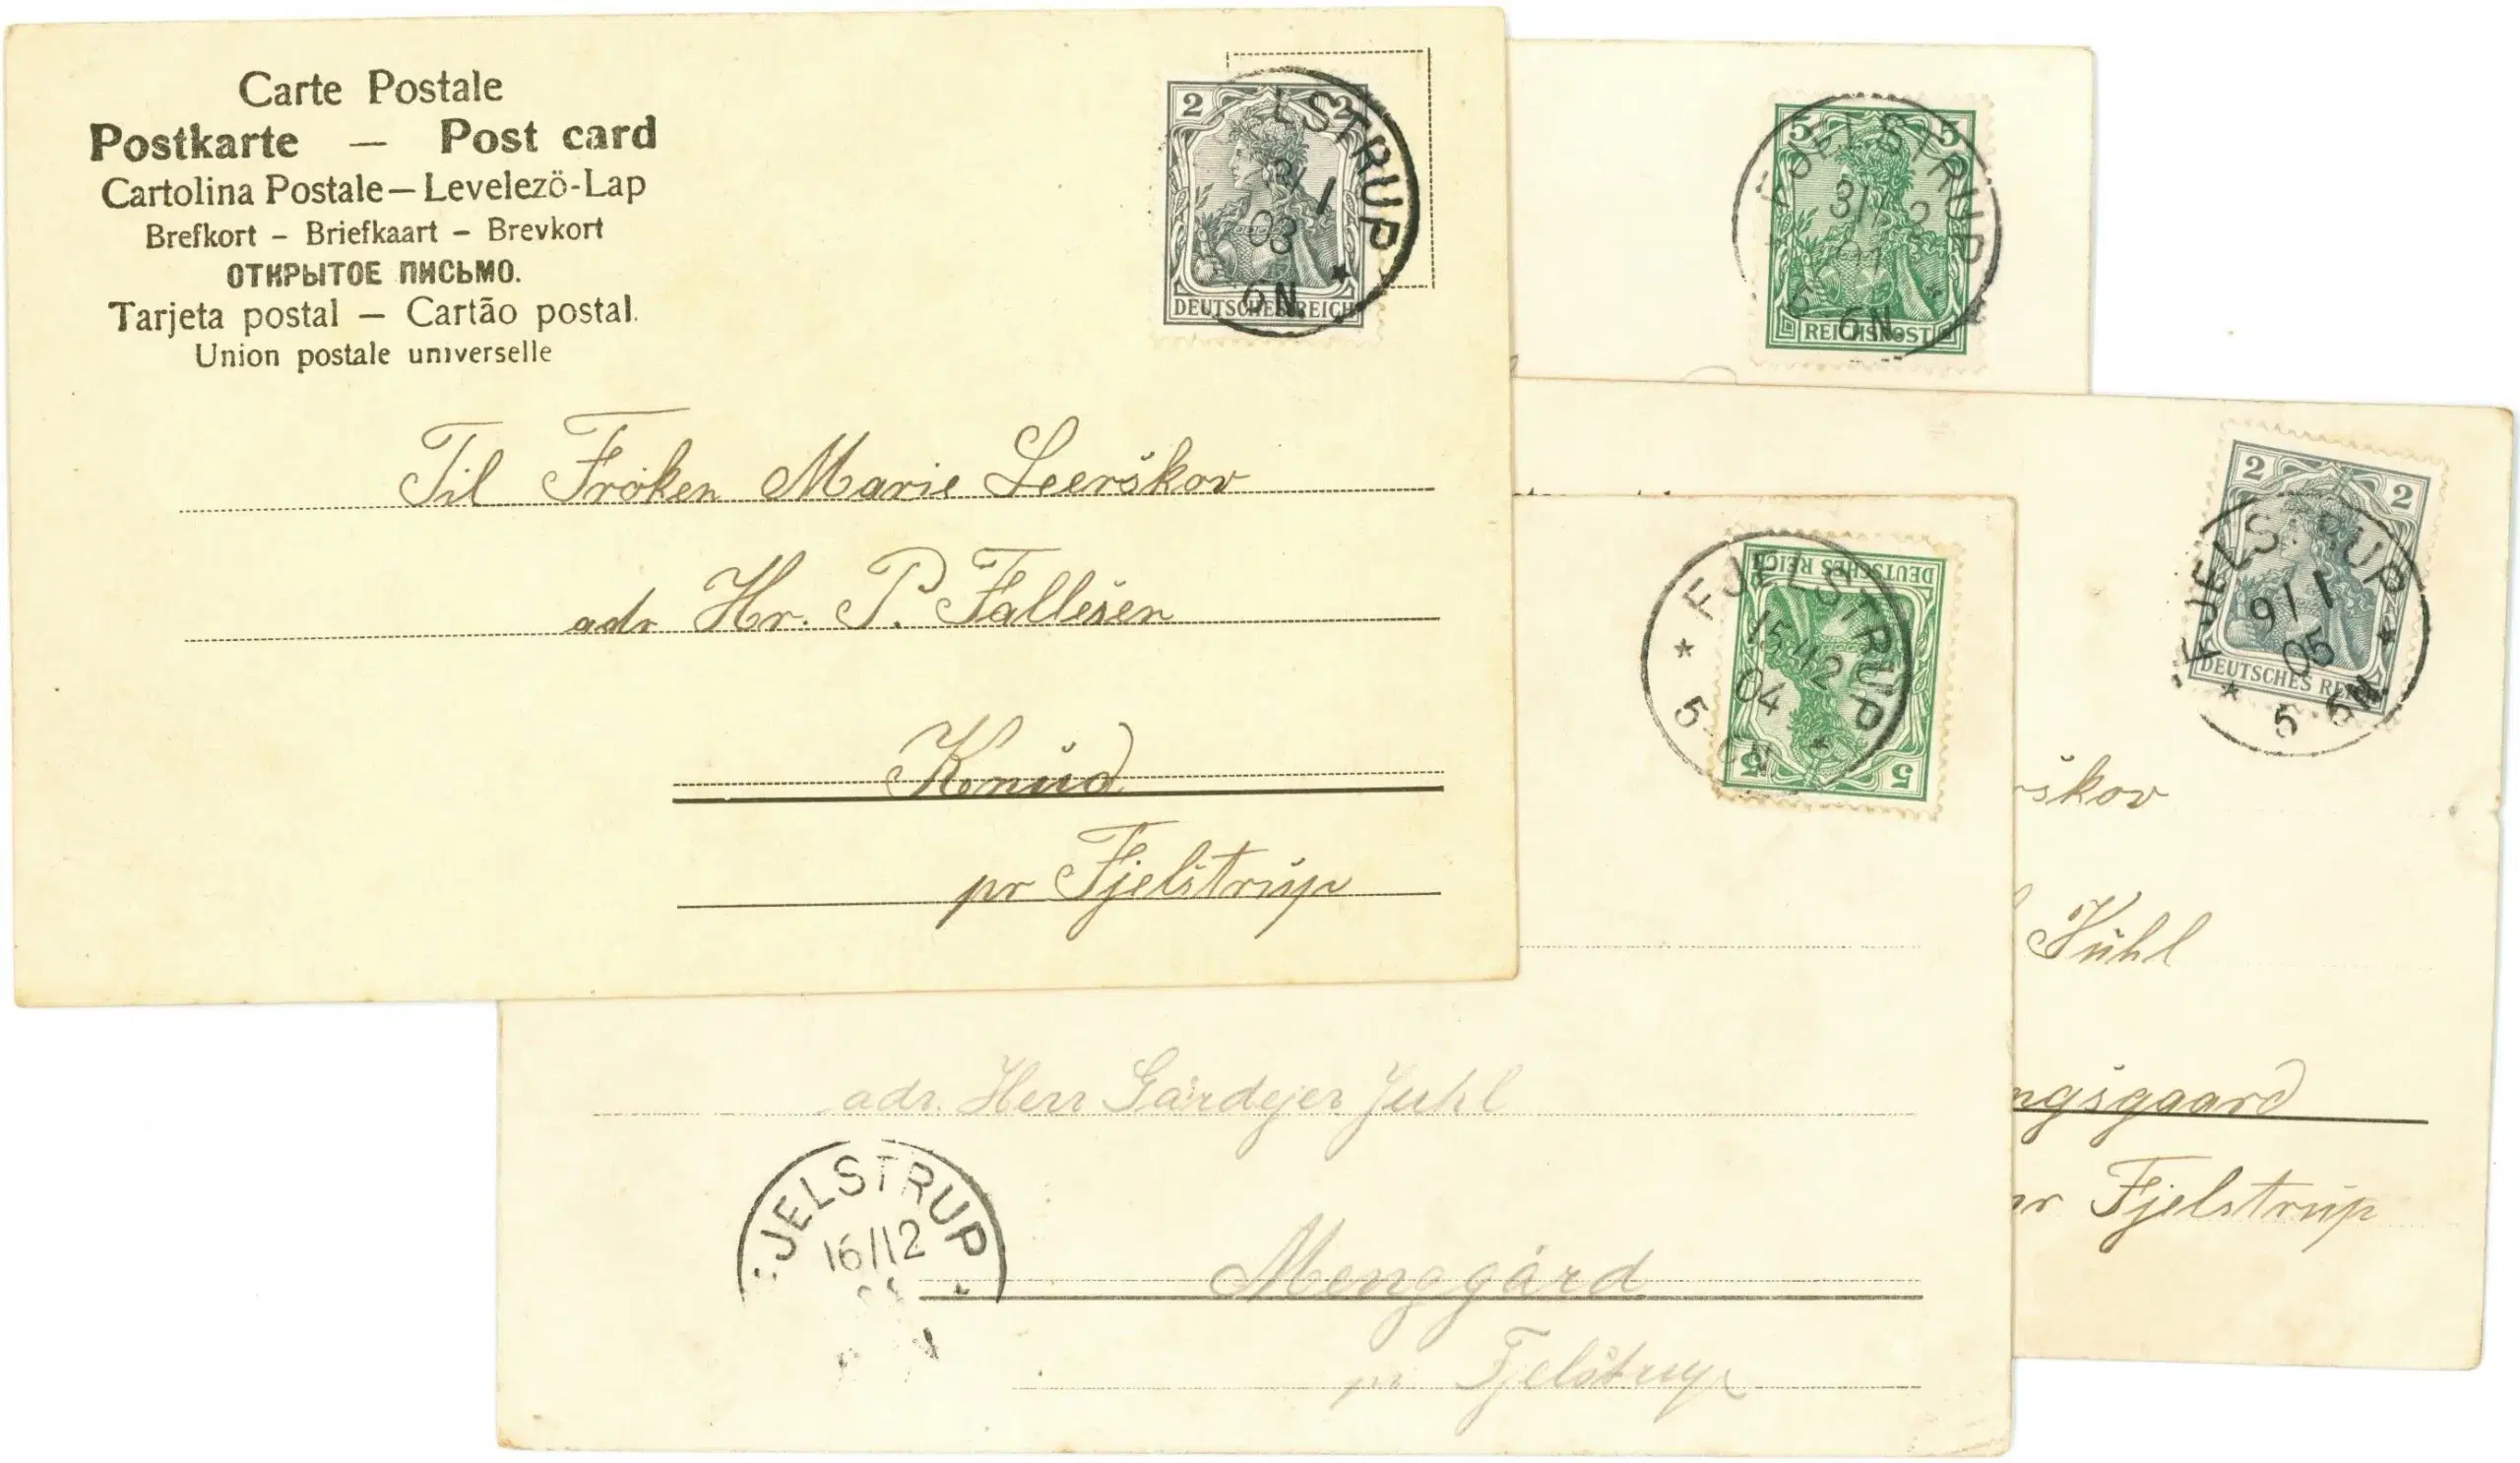 Carte Postale
Postkarte — Post card
Cartolina Postale — Levelezö-Lap
Brefkort – Briefkaart – Brevkort
ОТКРЫТОЕ ПИСЬМО.
Tarjeta postal — Cartão postal.
Union postale universelle
2 2
LSTRUP
03
6N
DEUTSCHES REICH
Til Fröken Marie Leerskov
adr Hr. P. Fallesen
Knud
pr Fjelstrup
5 5
FJELSTRUP
31/12
01
6N
REICHSPOST
2 2
FJELSTRUP
9/1
05
5 6N
DEUTSCHES REICH
skov
Juhl
ngsgaard
pr Fjelstrup
DEUTSCHES REICH
FJELSTRUP
15/12
04
5-6N
5 5
adr. Herr Gårdejer Juhl
JELSTRUP
16/12
Menggård
pr Fjelstrup